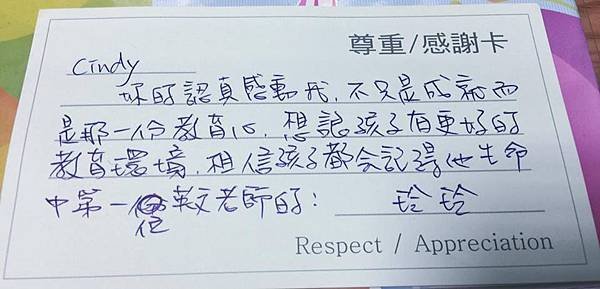 尊重/感謝卡
Cindy
妳的認真感動我，不只是成就而
是那一份教育心，想讓孩子有更好的
教育環境，相信孩子都会記得他生命
中第一位英文老師的：玲玲
Respect / Appreciation